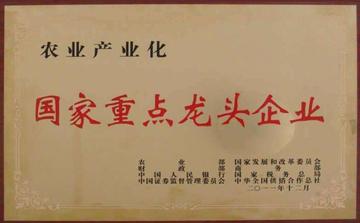 农业产业化
国家重点龙头企业
农业部 国家发展和改革委员会
财政部 商务部
中国人民银行 国家税务总局
中国证券监督管理委员会 中华全国供销合作总社
二〇一一年十二月